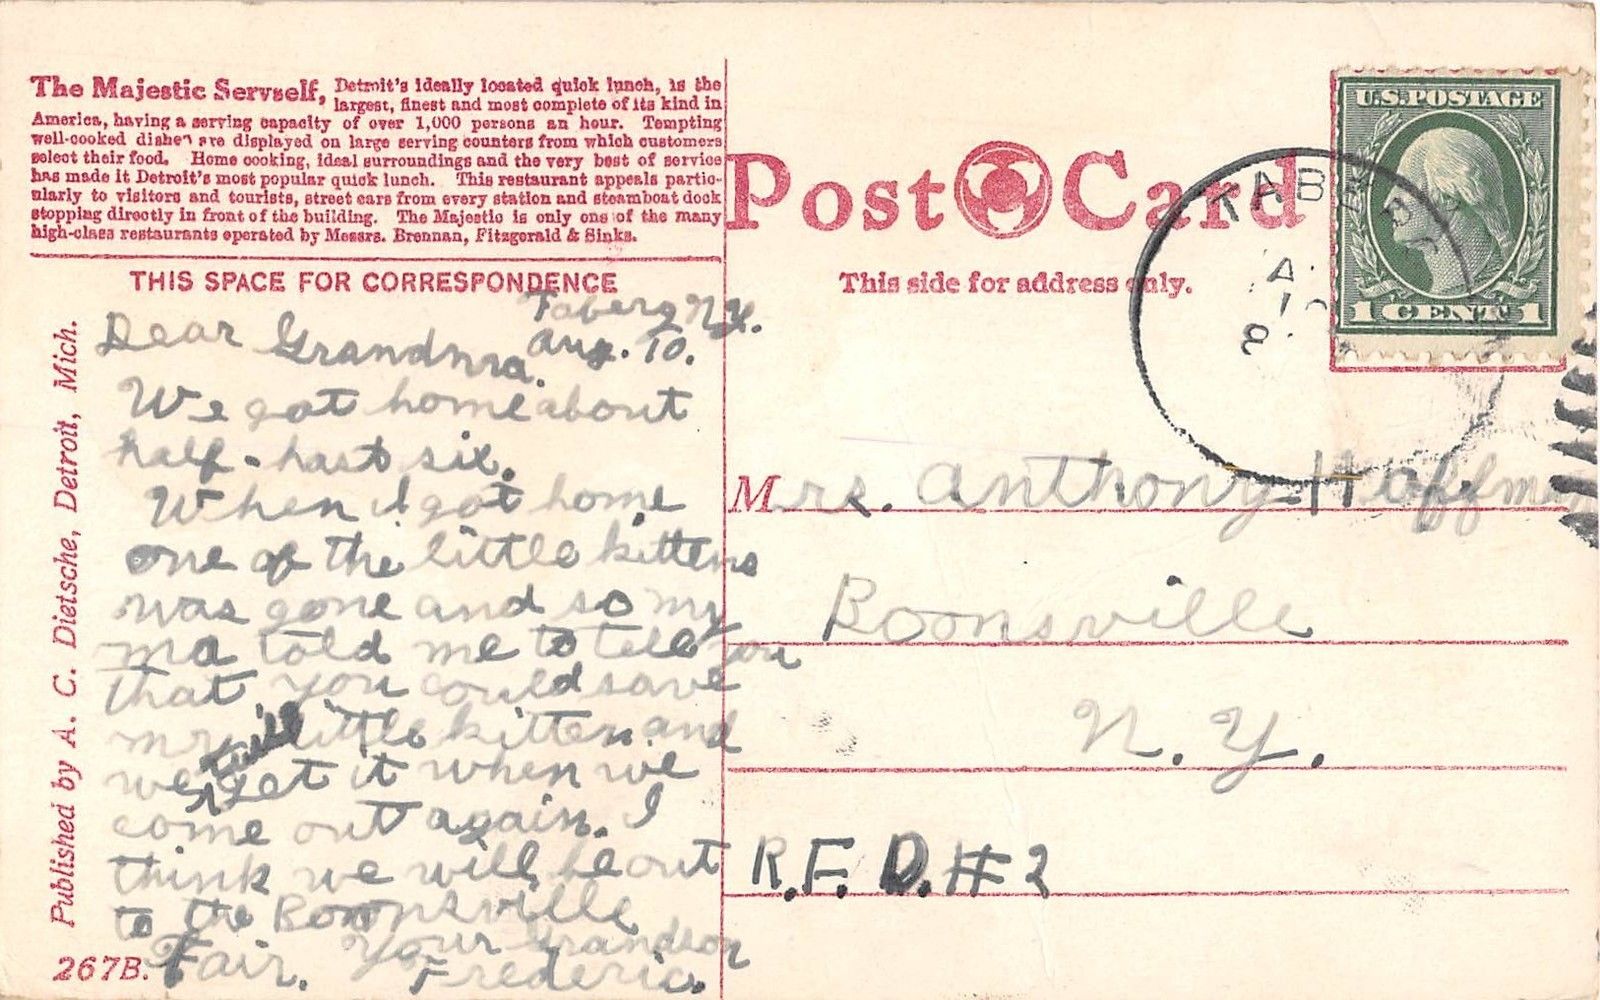 The Majestic Servself, Detroit's ideally located quick lunch, is the
largest, finest and most complete of its kind in
America, having a serving capacity of over 1,000 persons an hour. Tempting
well-cooked dishes are displayed on large serving counters from which customers
select their food. Home cooking, ideal surroundings and the very best of service
has made it Detroit's most popular quick lunch. This restaurant appeals partic-
ularly to visitors and tourists, street cars from every station and steamboat dock
stopping directly in front of the building. The Majestic is only one of the many
high-class restaurants operated by Messrs. Brennan, Fitzgerald & Sinks.
THIS SPACE FOR CORRESPONDENCE
Taberg N.Y.
Aug. 10.
Dear Grandma.
We got home about
half-past six.
When I got home
one of the little kittens
was gone and so my
ma told me to tell you
that you could save
my little kitten and
we will get it when we
come out again. I
think we will be out
to the Boonsville
Fair. Your Grandson
Frederic.
Published by A. C. Dietsche, Detroit, Mich.
267B.
Post Card
This side for address only.
U.S. POSTAGE
1 CENT 1
TABERG
A
10
8
Mrs. Anthony Hoffman
Boonsville
N. Y.
R.F.D. #2